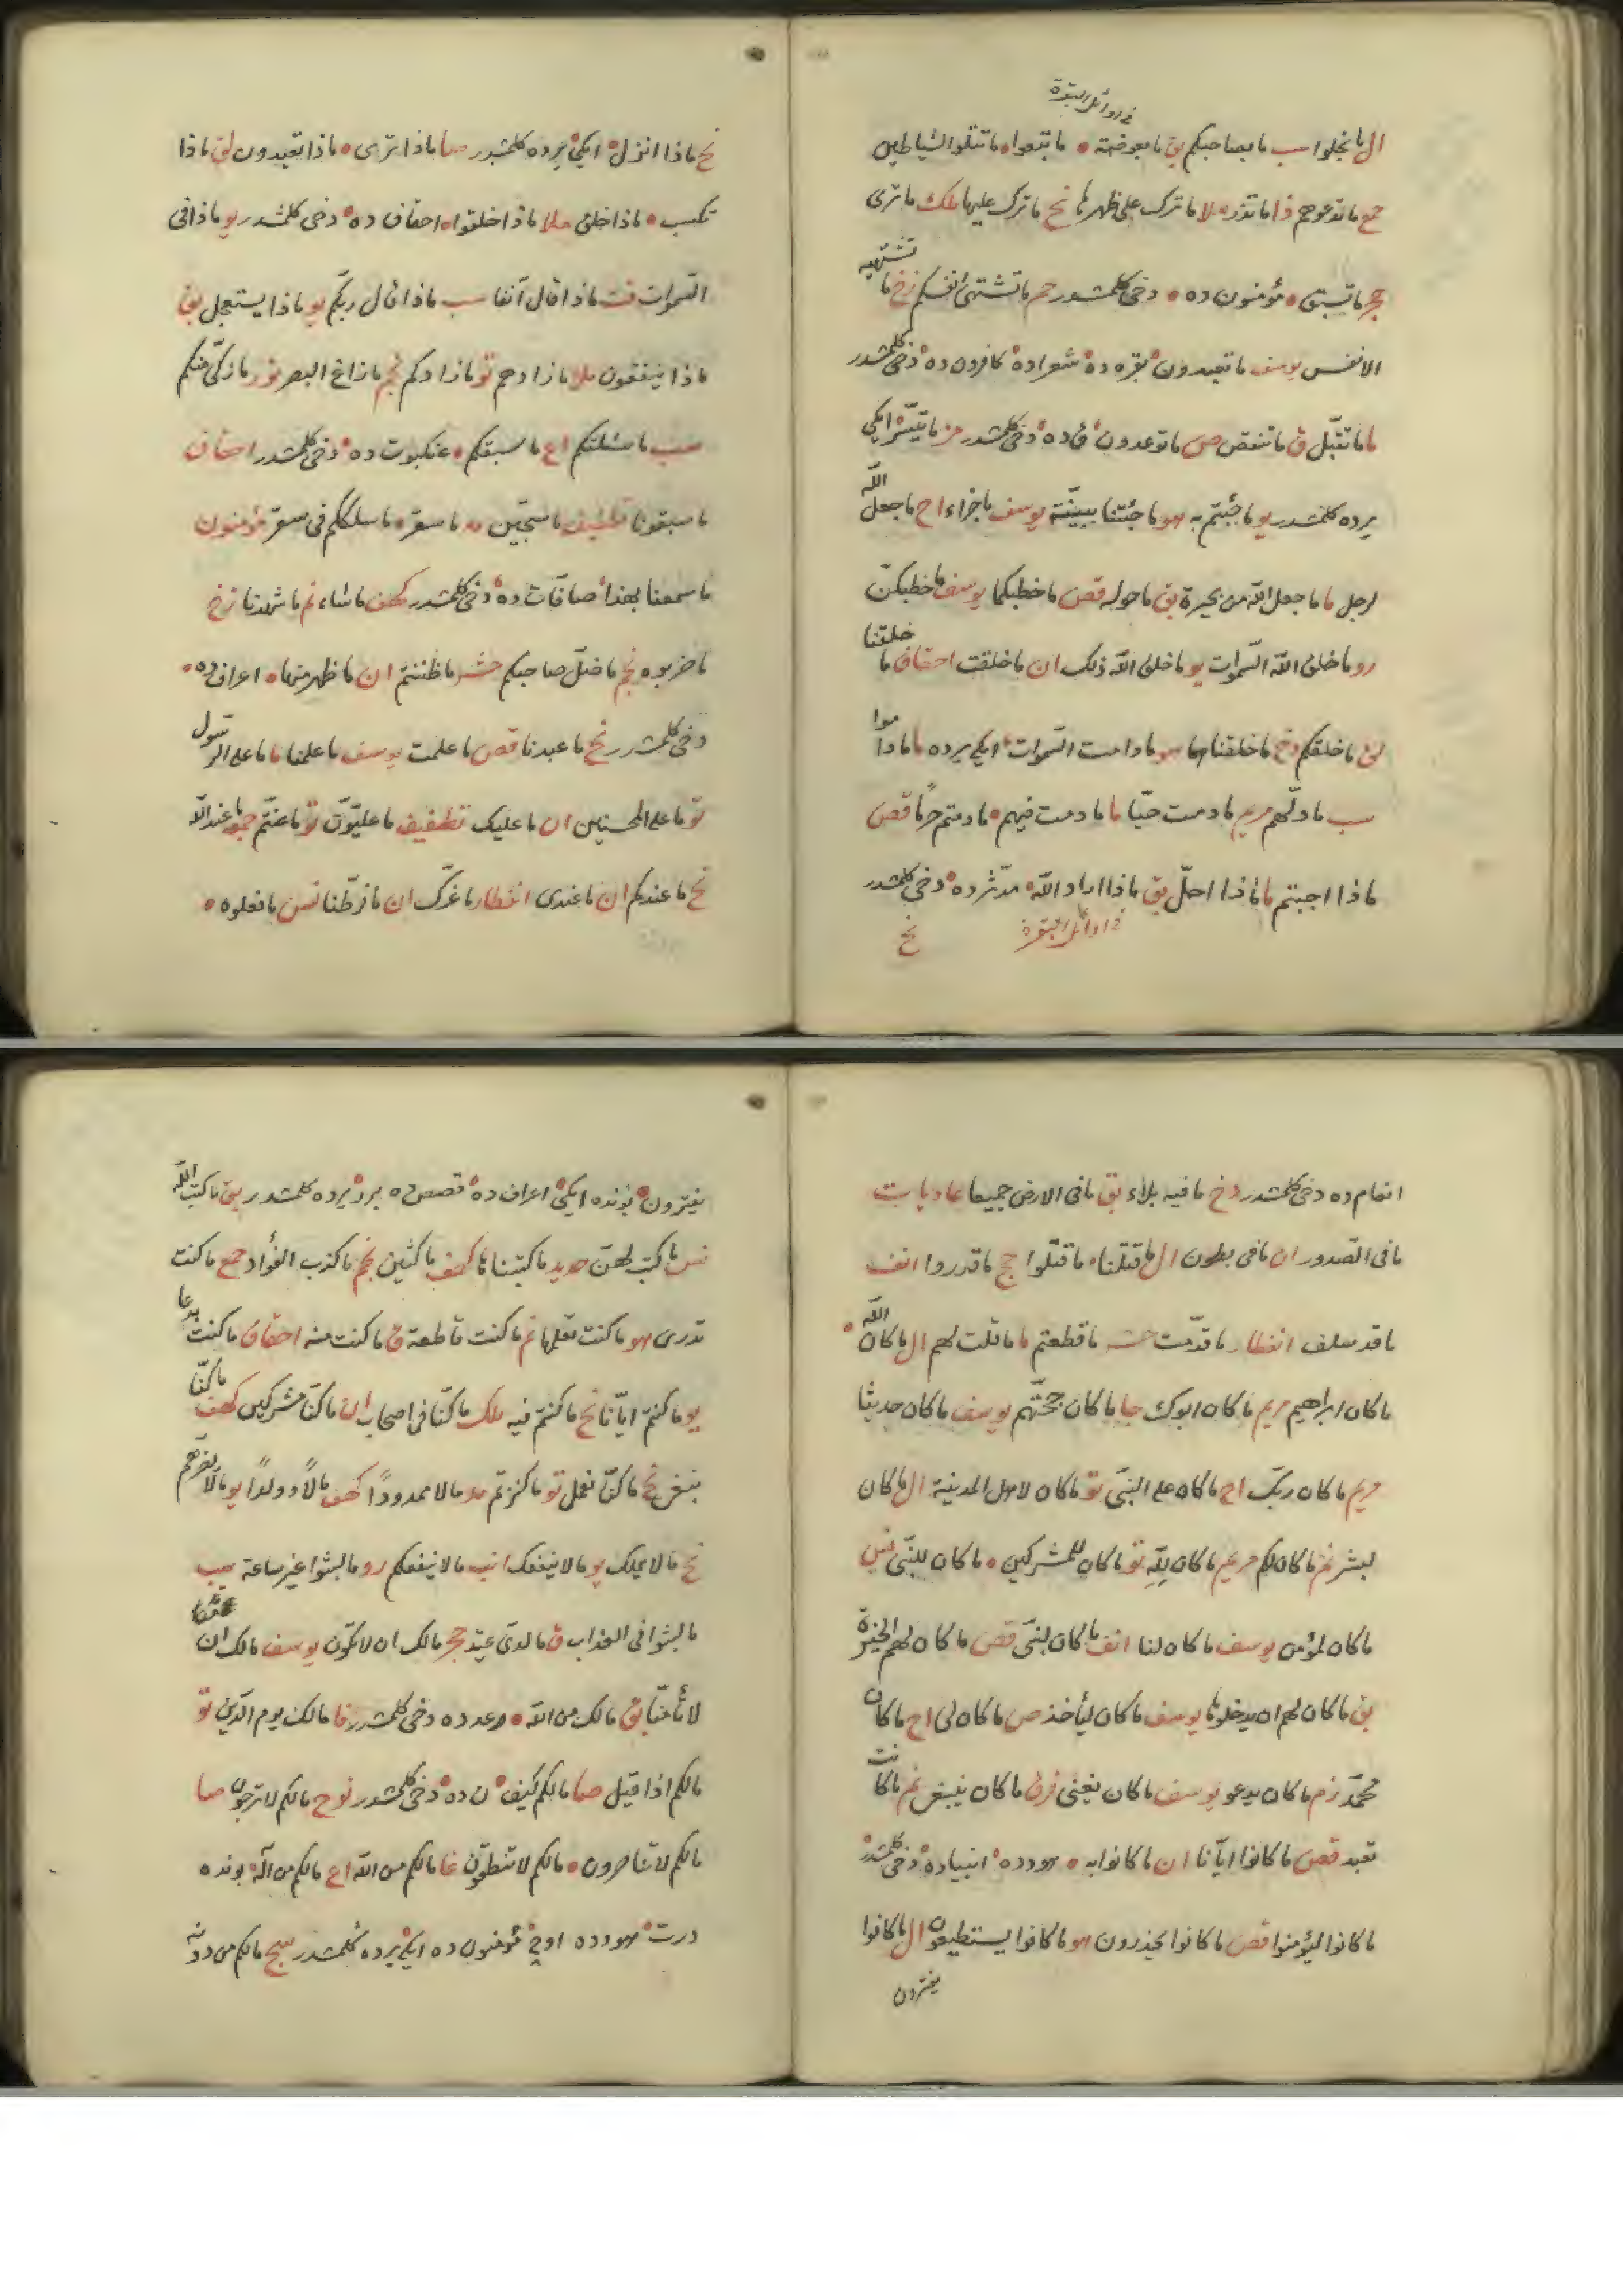 فی اوائل البقرة
ال ما بخلوا سب ما بصاحبكم بق ما بعوضة ° ما تتبعوا ° ما تتلوا الشياطين
حج ما تدعوهم ذا ما تذر ملا ما ترك على ظهرها نح ما ترك عليها ملك ما ترى
حجر ما تسبق ° مؤمنون ده ° دخی كلمشدر حم ما تشتهى انفسكم زخ ما تشتهيه
الانفس يوسف ما تعبدون ° بقره ده ° شعراده ° كافرون ده ° دخی كلمشدر
ما ما تقبل ق ما تنقص ص ما توعدون ° ق ده ° دخی كلمشدر مز ما تيسر ° ايكی
يرده كلمشدر يو ما جئتم به هو ما جئتنا ببينة يوسف ما جزاء اح ما جعل الله
لرجل ما ما جعل الله من بحيرة بق ما حوله قصص ما خطبكما يوسف ما خطبكن
رو ما خلق الله السموات يو ما خلق الله ذلك ان ما خلقت احقاف ما خلقنا
لق ما خلقكم دخ ما خلقناهما هو ما دامت السموات ° ايكی يرده ما ما داموا
سب ما دلهم مريم ما دمت حيا ما ما دمت فيهم ° ما دمتم حرما قصص
ماذا اجبتم ما ماذا احل بق ماذا اراد الله ° مدثر ده ° دخی كلمشدر
فی اوائل البقرة نح
نح ماذا انزل ° ايكی يرده كلمشدر صا ماذا ترى ° ماذا تعبدون لق ماذا
تكسب ° ماذا خلق ملا ماذا خلقوا ° احقاف ده ° دخی كلمشدر يو ماذا فى
السموات قت ماذا قال آنفا سب ماذا قال ربكم يو ماذا يستعجل بق
ماذا ينفقون ملا ما زادهم تو ما زادوكم نجم ما زاغ البصر نور ما زكى منكم
سب ما سئلتكم اع ما سبقكم ° عنكبوت ده ° دخی كلمشدر احقاف
ما سبقونا تطفيف ما سجين مد ما سقر ° ما سلككم فى سقر مؤمنون
ما سمعنا بهذا ° صافات ده ° دخی كلمشدر كهف ما شاء نم ما شهدنا زخ
ما ضربوه نجم ما ضل صاحبكم حشر ما ظننتم ان ما ظهر منها ° اعراف ده °
دخی كلمشدر نح ما عبدنا قصص ما علمت يوسف ما علمنا ما ما على الرسول
تو ما على المحسنين ان ما عليك تطفيف ما عليون تو ما عنتم جمعه ما عند الله
نح ما عندكم ان ما عندى انفطار ما غرك ان ما فرطنا نس ما فعلوه °
انعام ده دخی كلمشدر دخ ما فيه بلاء بق ما فى الارض جميعا عاديات
ما فى الصدور ان ما فى بطون ال ما قتلنا ° ما قتلوا حج ما قدروا انف
ما قد سلف انفطار ما قدمت حشر ما قطعتم ما ما قلت لهم ال ما كان الله °
ما كان ابراهيم مريم ما كان ابوك جا ما كان حجتهم يوسف ما كان حديثا
مريم ما كان ربك اح ما كان على النبى تو ما كان لاهل المدينة ال ما كان
لبشر نم ما كان لكم مريم ما كان لله تو ما كان للمشركين ° ما كان للنبى نس
ما كان لمؤمن يوسف ما كان لنا انف ما كان لنبى قصص ما كان لهم الخيرة
بق ما كان لهم ان يدخلوها يوسف ما كان ليأخذ ص ما كان لى اح ما كان
محمد زم ما كان يدعو يوسف ما كان يغنى فرق ما كان ينبغى نم ما كانت
تعبد قصص ما كانوا ايانا ان ما كانوا به ° هود ده ° انبياده ° دخی كلمشدر
ما كانوا ليؤمنوا قصص ما كانوا يحذرون هو ما كانوا يستطيعون ال ما كانوا
يفترون
يفترون ° بونده ايكی ° اعراف ده ° قصص ده برر يرده كلمشدر بق ما كتب الله
نس ما كتب لهن حديد ما كتبناها كهف ما كثين نجم ما كذب الفؤاد حمع ما كنت
تدرى هو ما كنت تعلمها نم ما كنت قاطعة ق ما كنت منه احقاف ما كنت بدعا
يو ما كنتم ايانا نح ما كنتم فيه ملك ما كنا فى اصحاب ان ما كنا مشركين كهف ما كنا
نبغى نح ما كنا نعمل تو ما كنزتم مد مالا ممدودا كهف مالا وولدا يو ما لا يضرهم
نح ما لا يملك يو ما لا ينفعك انب ما لا ينفعكم رو ما لبثوا غير ساعة سب
ما لبثوا فى العذاب ق ما لدى عتيد حجر مالك ان لا تكون يوسف مالك
لا تأمنا بق مالك من الله ° رعد ده دخی كلمشدر فا مالك يوم الدين تو
مالكم اذا قيل صا مالكم كيف ° ن ده ° دخی كلمشدر نوح مالكم لا ترجون صا
مالكم لا تناصرون ° مالكم لا تنطقون غا مالكم من الله اع مالكم من اله ° بونده
درت ° هود ده اوچ ° مؤمنون ده ايكی يرده كلمشدر سج مالكم من دونه